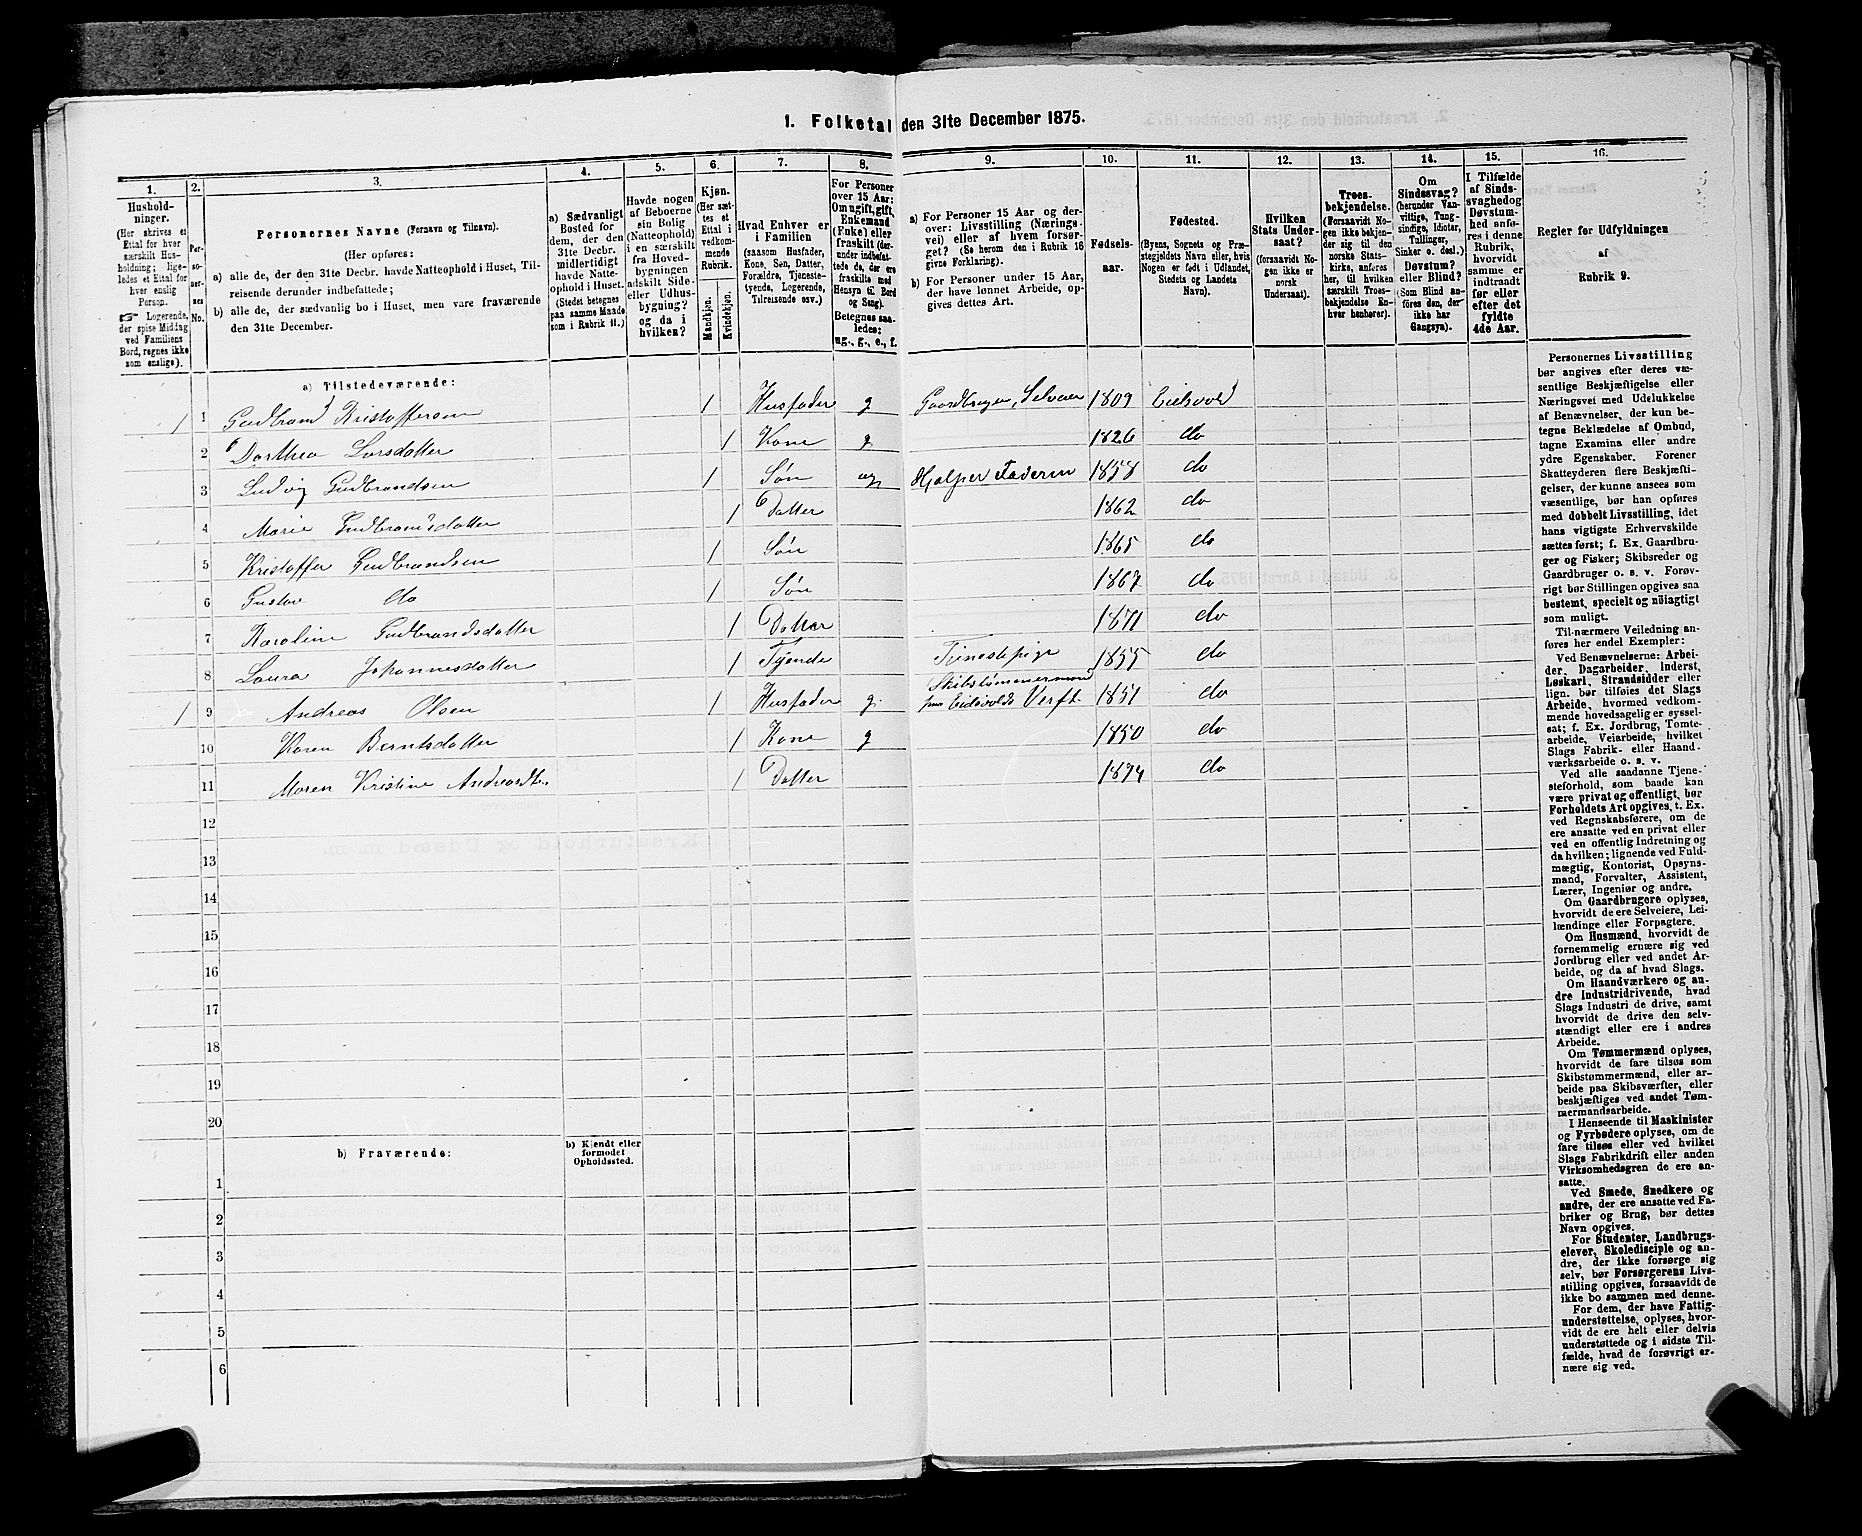 1. Folketal den 31te December 1875.
1. 2. 3. 4. 5. 6. 7. 8. 9. 10. 11. 12. 13. 14. 15. 16.
Hushold-
ninger.
(Her skrives et
Ettal for hver
særskilt Hus-
holdning; lige-
ledes et Ettal for
hver enslig
Person.
☞ Logerende,
der spise Middag
ved Familiens
Bord, regnes ikke
som enslige).
Per-
so-
ner-
nes
No.
Personernes Navne (Fornavn og Tilnavn).
(Her opføres:
a) alle de, der den 31te Decbr. havde Natteophold i Huset, Til-
reisende derunder indbefattede;
b) alle de, der sædvanlig bo i Huset, men vare fraværende
den 31te December.
a) Sædvanligt
Bosted for
dem, der den
31te Decbr.
midlertidigt
havde Natte-
ophold i Huset.
(Stedet betegnes
paa samme Maade
som i Rubrik 11.)
Havde nogen
af Beboerne
sin Bolig
(Natteophold)
i en særskilt
fra Hoved-
bygningen
adskilt Side-
eller Udhus-
bygning?
og da i
hvilken?
Kjøn.
(Her sæt-
tes et
Ettal i
vedkom-
mende
Rubrik.
Mandkjøn.
Kvindekjøn.
Hvad Enhver er
i Familien
(saasom Husfader,
Kone, Søn, Datter,
Forældre, Tjeneste-
tyende, Logerende,
Tilreisende osv.)
For Personer
over 15 Aar:
Om ugift, gift,
Enkemand
(Enke) eller
fraskilt (der-
under indbefat-
tede de, der ere
fraskilte med
Hensyn til Bord
og Seng).
Betegnes saa-
ledes:
ug., g., e., f.
a) For Personer 15 Aar og der-
over: Livsstilling (Nærings-
vei) eller af hvem forsør-
get? (Se herom den i Rubrik 16
givne Forklaring).
b) For Personer under 15 Aar,
der have lønnet Arbeide, op-
gives dettes Art.
Fødsels-
aar.
Fødested.
(Byens, Sognets og Præ-
stegjeldets Navn eller, hvis
Nogen er født i Udlandet,
Stedets og Landets
Navn).
Hvilken
Stats Under-
saat?
(forsaavidt No-
gen ikke er
norsk
Undersaat).
Troes-
bekjendelse.
(Forsaavidt No-
gen ikke bekjen-
der sig til den
norske Stats-
kirke, anføres
her, til hvilken
særskilt Troes-
bekjendelse En-
hver henhører).
Om
Sindssvag?
(herunder Van-
vittige, Tung-
sindige, Idioter,
Tullinger,
Sinker o. desl.)
Døvstum?
eller Blind?
(Som Blind an-
føres den, der
ikke har
Gangsyn).
I Tilfælde
af Sinds-
svaghed og
Døvstum-
hed anfø-
res i denne
Rubrik,
hvorvidt
samme er
indtraadt
før eller
efter det
fyldte
4de Aar.
Regler for Udfyldningen
af
Rubrik 9.
a) Tilstedeværende:
1 1 Gudbrand Kristoffersen 1 Husfader g Gaardbruger, Selveier 1809 Eidsvold
2 Dorthea Larsdatter 1 Kone g 1826 do
3 Ludvig Gudbrandsen 1 Søn ug Hjælper Faderen 1858 do
4 Marie Gudbrandsdatter 1 Datter 1862 do
5 Kristoffer Gudbrandsen 1 Søn 1865 do
6 Gustav do 1 Søn 1867 do
7 Karoline Gudbrandsdatter 1 Datter 1871 do
8 Laura Johannesdatter 1 Tyende Tjenestepige 1855 do
1 9 Andreas Olsen 1 Husfader g. Skibstømmermand
paa Eidsvolds Verft 1851 do
10 Karen Berntsdatter 1 Kone g 1850 do
11 Maren Kristine Andreasdt. 1 Datter 1874 do
12
13
14
15
16
17
18
19
20
b) Fraværende:
b) Kjendt eller
formodet
Opholdssted.
1
2
3
4
5
6
Personernes Livsstilling
bør angives efter deres væ-
sentlige Beskjæftigelse eller
Næringsvei med Udelukkelse
af Benævnelser, der kun be-
tegne Beklædelse af Ombud,
tagne Examina eller andre
ydre Egenskaber. Forener
Skatteyderen flere Beskjæfti-
gelser, der kunne ansees som
væsentlige, bør han opføres
med dobbelt Livsstilling, idet
hans vigtigste Erhvervskilde
sættes først; f. Ex. Gaardbru-
ger og Fisker; Skibsreder og
Gaardbruger o. s. v. Forøv-
rigt bør Stillingen opgives saa
bestemt, specielt og nøiagtigt
som muligt.
Til nærmere Veiledning an-
føres her endel Exempler:
Ved Benævnelserne: Arbei-
der, Dagarbeider, Inderst,
Løskarl, Strandsidder eller
lign. bør tilføies det Slags
Arbeide, hvormed vedkom-
mende hovedsagelig er syssel-
sat; f. Ex. Jordbrug, Tomte-
arbeide, Veiarbeide, hvilket
Slags Fabrik- eller Haand-
værksarbeide o. s. v.
Ved alle saadanne Tjene-
steforhold, som baade kan
være privat og offentligt, bør
Forholdets Art opgives, t. Ex.
ved Regnskabsførere, om de
ere ansatte ved en privat eller
ved en offentlig Indretning og
da hvilken; lignende ved Fuld-
mægtig, Kontorist, Opsyns-
mand, Forvalter, Assistent,
Lærer, Ingeniør og andre.
Om Gaardbrugere oplyses,
hvorvidt de ere Selveiere, Lei-
lændinge eller Forpagtere.
Om Husmænd, hvorvidt de
fornemmelig ernære sig ved
Jordbrug eller ved andet Ar-
beide, og da af hvad Slags.
Om Haandværkere og an-
dre Industridrivende, hvad
Slags Industri de drive, samt
hvorvidt de drive den selv-
stændigt eller ere i andres
Arbeide.
Om Tømmermænd oplyses,
hvorvidt de fare tilsøs som
Skibstømmermænd, eller ar-
beide paa Skibsværfter, eller
beskjæftiges ved andet Tøm-
mermandsarbeide.
I Henseende til Maskinister
og Fyrbødere oplyses, om de
fare tilsøs eller ved hvilket
Slags Fabrikdrift eller anden
Virksomhedsgren de ere an-
satte.
Ved Smede, Snedkere og
andre, der ere ansatte ved Fa-
briker og Brug, bør dettes
Navn opgives.
For Studenter, Landbrugs-
elever, Skoledisciple og an-
dre, der ikke forsørge sig
selv, bør Forsørgerens Livs-
stilling opgives, forsaavidt de
ikke bo sammen med denne.
For dem, der have Fattig-
understøttelse, oplyses, hvor-
vidt de ere helt eller delvis
understøttede og i sidste Til-
fælde, hvad de forøvrigt er-
nære sig ved.